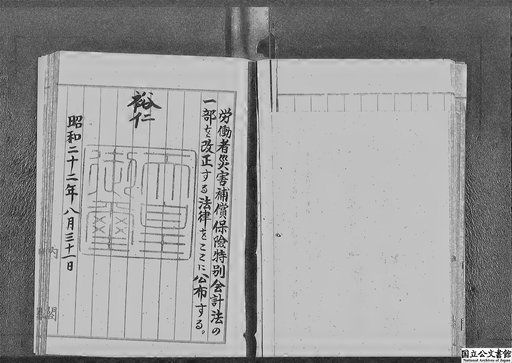 労働者災害補償保険特別会計法の
一部を改正する法律をここに公布する。
裕仁
天皇御璽
昭和二十二年八月三十一日
内閣
国立公文書館
National Archives of Japan